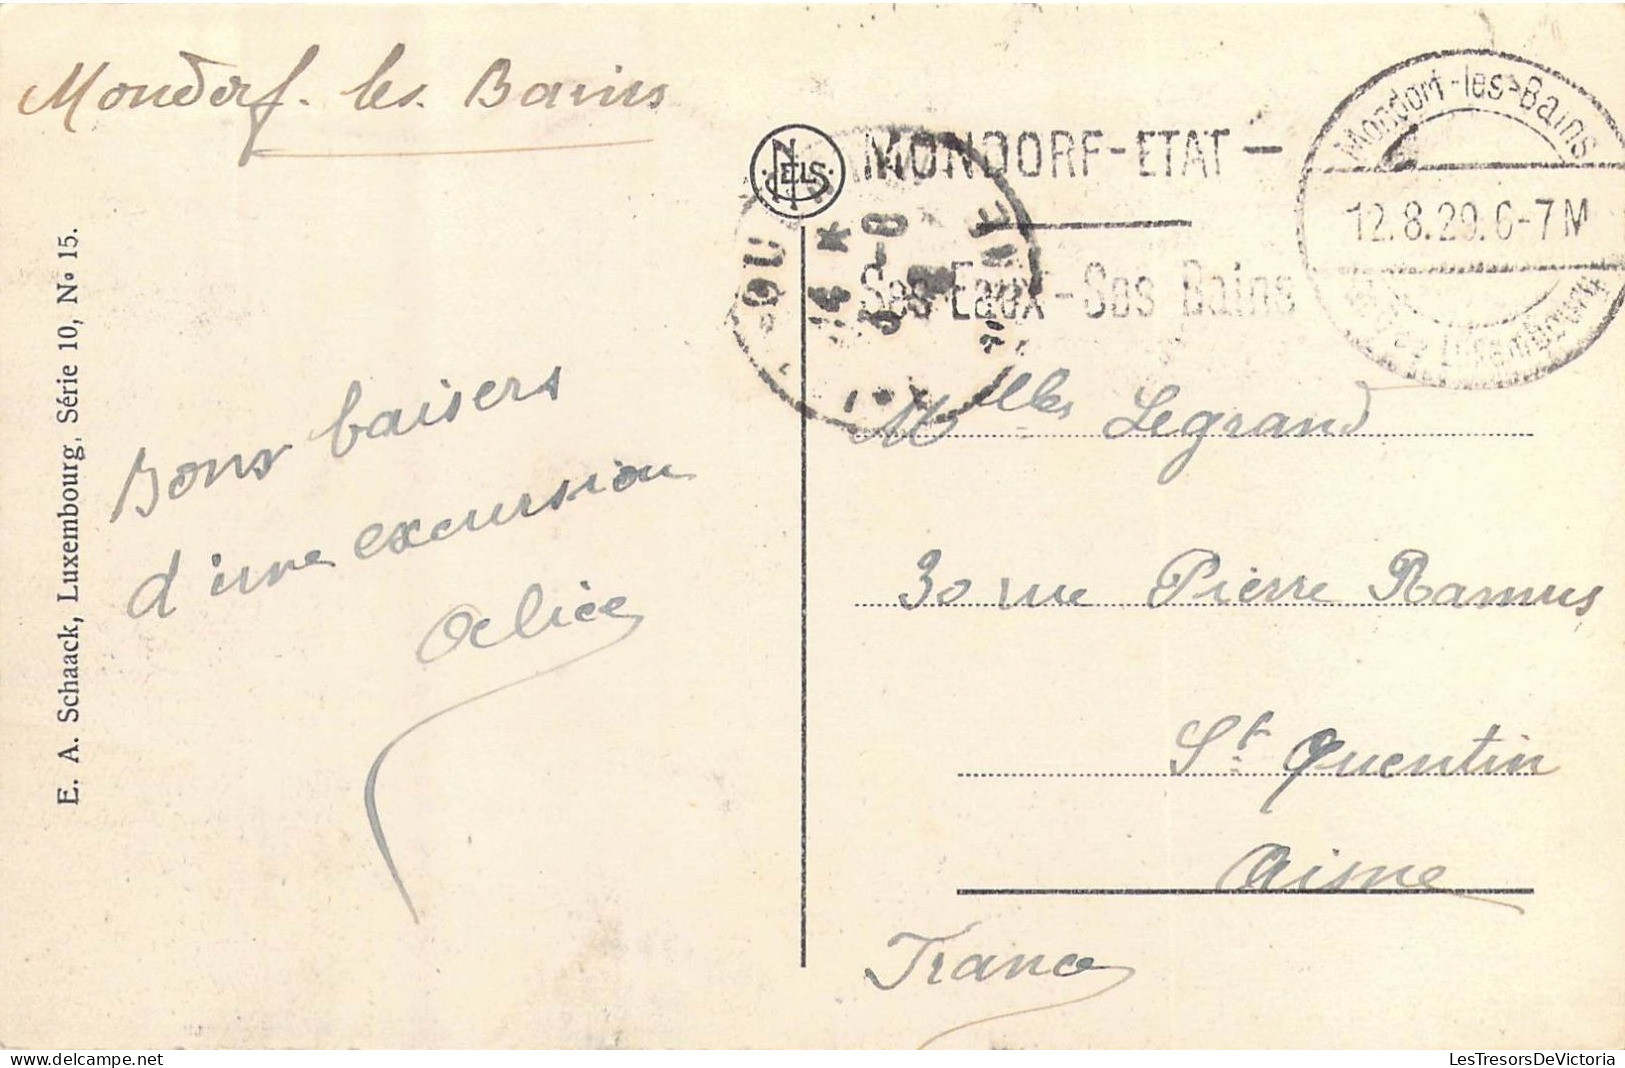 Mondorf. les. Bains
NELS
MONDORF-ETAT -
Ses Eaux - Ses Bains
Mondorf-les-Bains
12.8.29.6-7M
Luxembourg
E. A. Schaack, Luxembourg, Série 10, Nº 15.
Bons baisers
d'une excursion
Alice
Melles Legrand
30 rue Pierre Ramus
St Quentin
Aisne
France
LesTresorsDeVictoria
delcampe.net